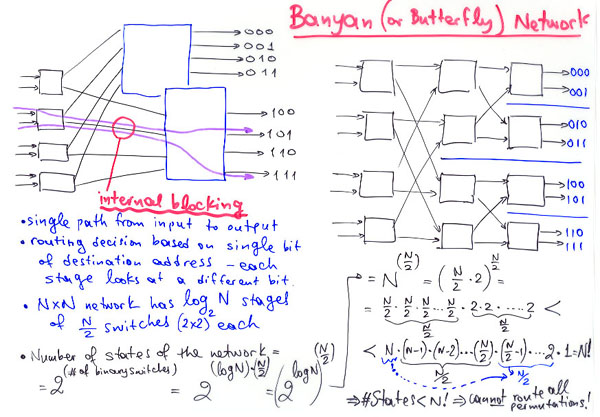 Banyan (or Butterfly) Network
000
001
010
011
100
101
110
111
internal blocking
• single path from input to output
• routing decision based on single bit
of destination address – each
stage looks at a different bit.
• N×N network has log₂N stages
of N/2 switches (2x2) each
• Number of states of the network =
= 2^(# of binary switches) = 2^((logN)·(N/2)) = (2^logN)^(N/2)
000
001
010
011
100
101
110
111
= N^(N/2) = (N/2 · 2)^(N/2) =
= N/2 · N/2 · N/2 ... N/2 · 2 · 2 · .... · 2 <
N/2 N/2
< N · (N-1) · (N-2) ... (N/2) · (N/2 -1) · ... 2 · 1 = N!
N/2 N/2
⇒ #States < N! ⇒ cannot route all
permutations!